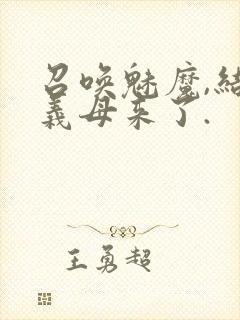 召唤魅魔,结
義母来了.
王勇超